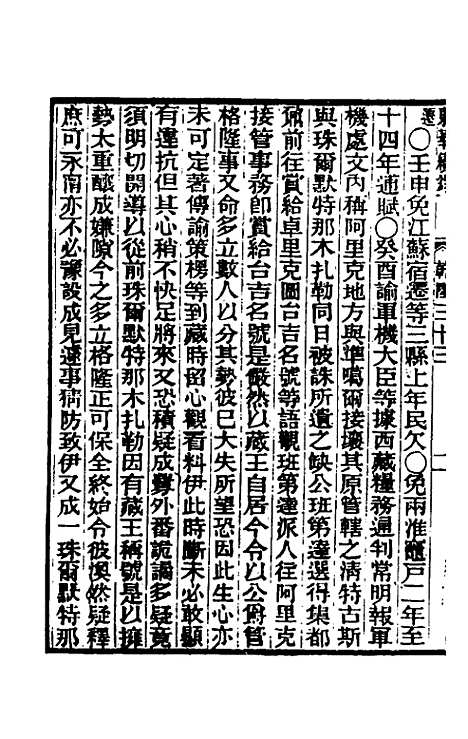 東華續錄 乾隆三十三
遷〇壬申免江蘇宿遷等三縣上年民欠〇免兩淮竈戶二年至
十四年逋賦〇癸酉諭軍機大臣等據西藏糧務通判常明報軍
機處文內稱阿里克地方與準噶爾接壤其原管轄之清特古斯
與珠爾默特那木扎勒同日被誅所遺之缺公班第達選得集都
佩前往賞給卓里克圖台吉名號等語觀班第達派人往阿里克
接管事務卽賞給台吉名號是儼然以藏王自居今令以公爵管
格隆事又命多立數人以分其勢彼已大失所望恐因此生心亦
未可定著傳諭策楞等到藏時留心觀看料伊此時斷未必敢顯
有違抗但其心稍不快足將來又恐積疑成釁外番詭譎多疑竟
須明切開導以從前珠爾默特那木扎勒因有藏王稱號是以擁
勢太重釀成嫌隙今之多立格隆正可保全終始令彼渙然疑釋
庶可永甯亦不必豫設成見遽事猜防致伊又成一珠爾默特那